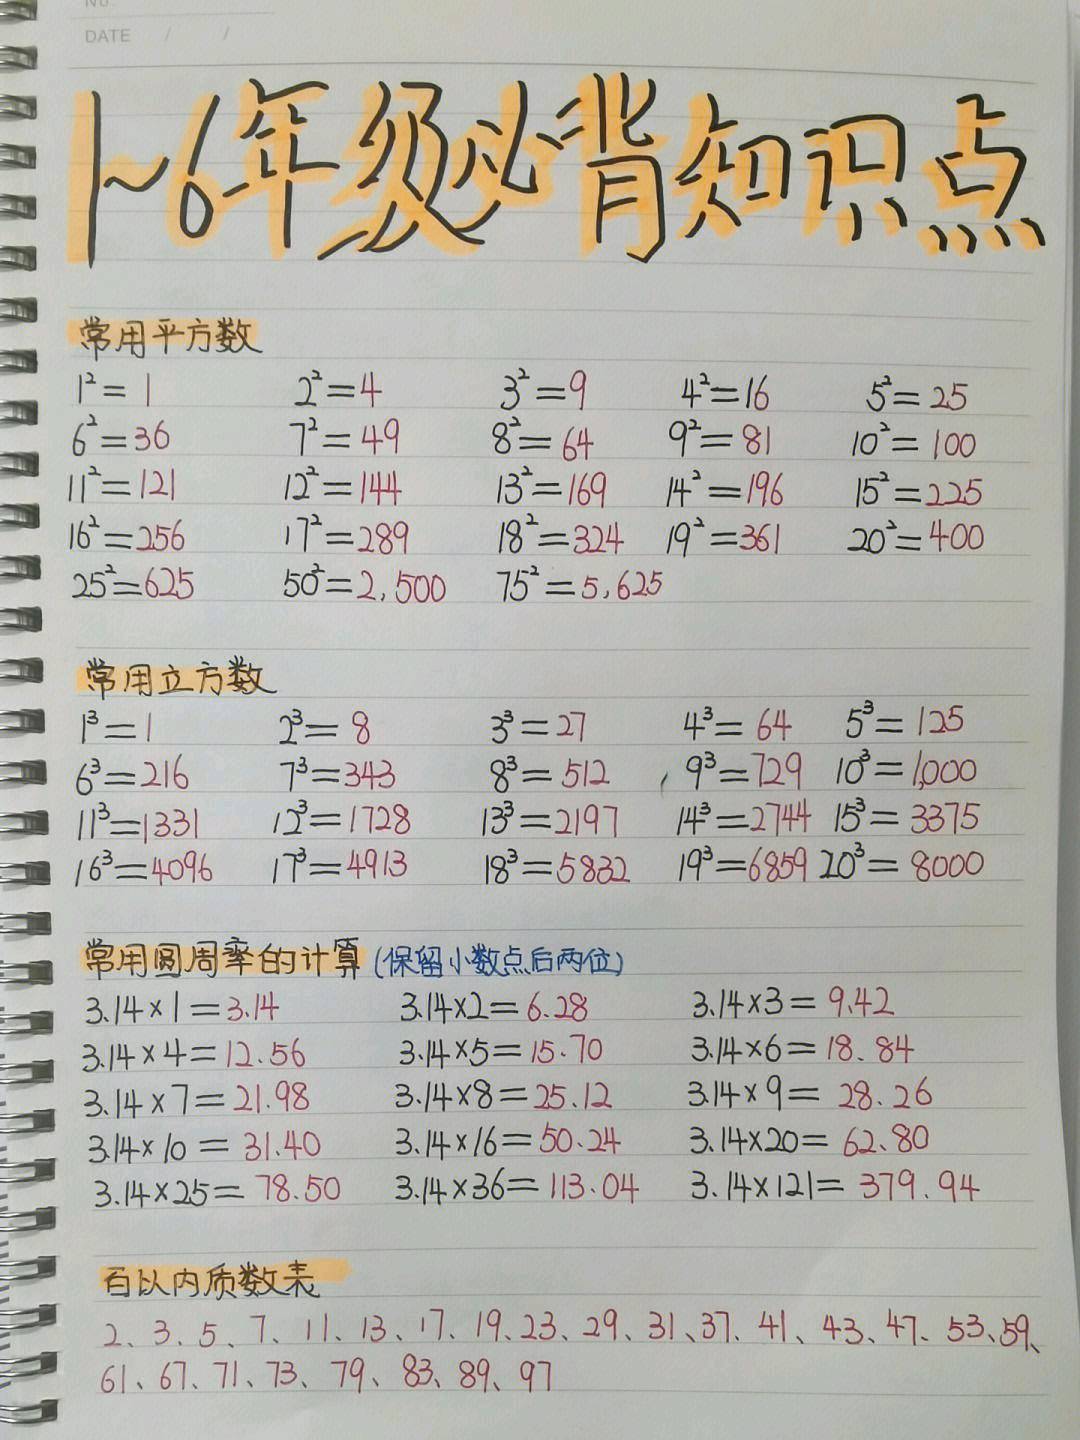 No
DATE / /
1~6年级必背知识点
常用平方数
1²=1 2²=4 3²=9 4²=16 5²=25
6²=36 7²=49 8²=64 9²=81 10²=100
11²=121 12²=144 13²=169 14²=196 15²=225
16²=256 17²=289 18²=324 19²=361 20²=400
25²=625 50²=2,500 75²=5,625
常用立方数
1³=1 2³=8 3³=27 4³=64 5³=125
6³=216 7³=343 8³=512 9³=729 10³=1,000
11³=1331 12³=1728 13³=2197 14³=2744 15³=3375
16³=4096 17³=4913 18³=5832 19³=6859 20³=8000
常用圆周率的计算(保留小数点后两位)
3.14×1=3.14 3.14×2=6.28 3.14×3=9.42
3.14×4=12.56 3.14×5=15.70 3.14×6=18.84
3.14×7=21.98 3.14×8=25.12 3.14×9=28.26
3.14×10=31.40 3.14×16=50.24 3.14×20=62.80
3.14×25=78.50 3.14×36=113.04 3.14×121=379.94
百以内质数表
2、3、5、7、11、13、17、19、23、29、31、37、41、43、47、53、59、
61、67、71、73、79、83、89、97